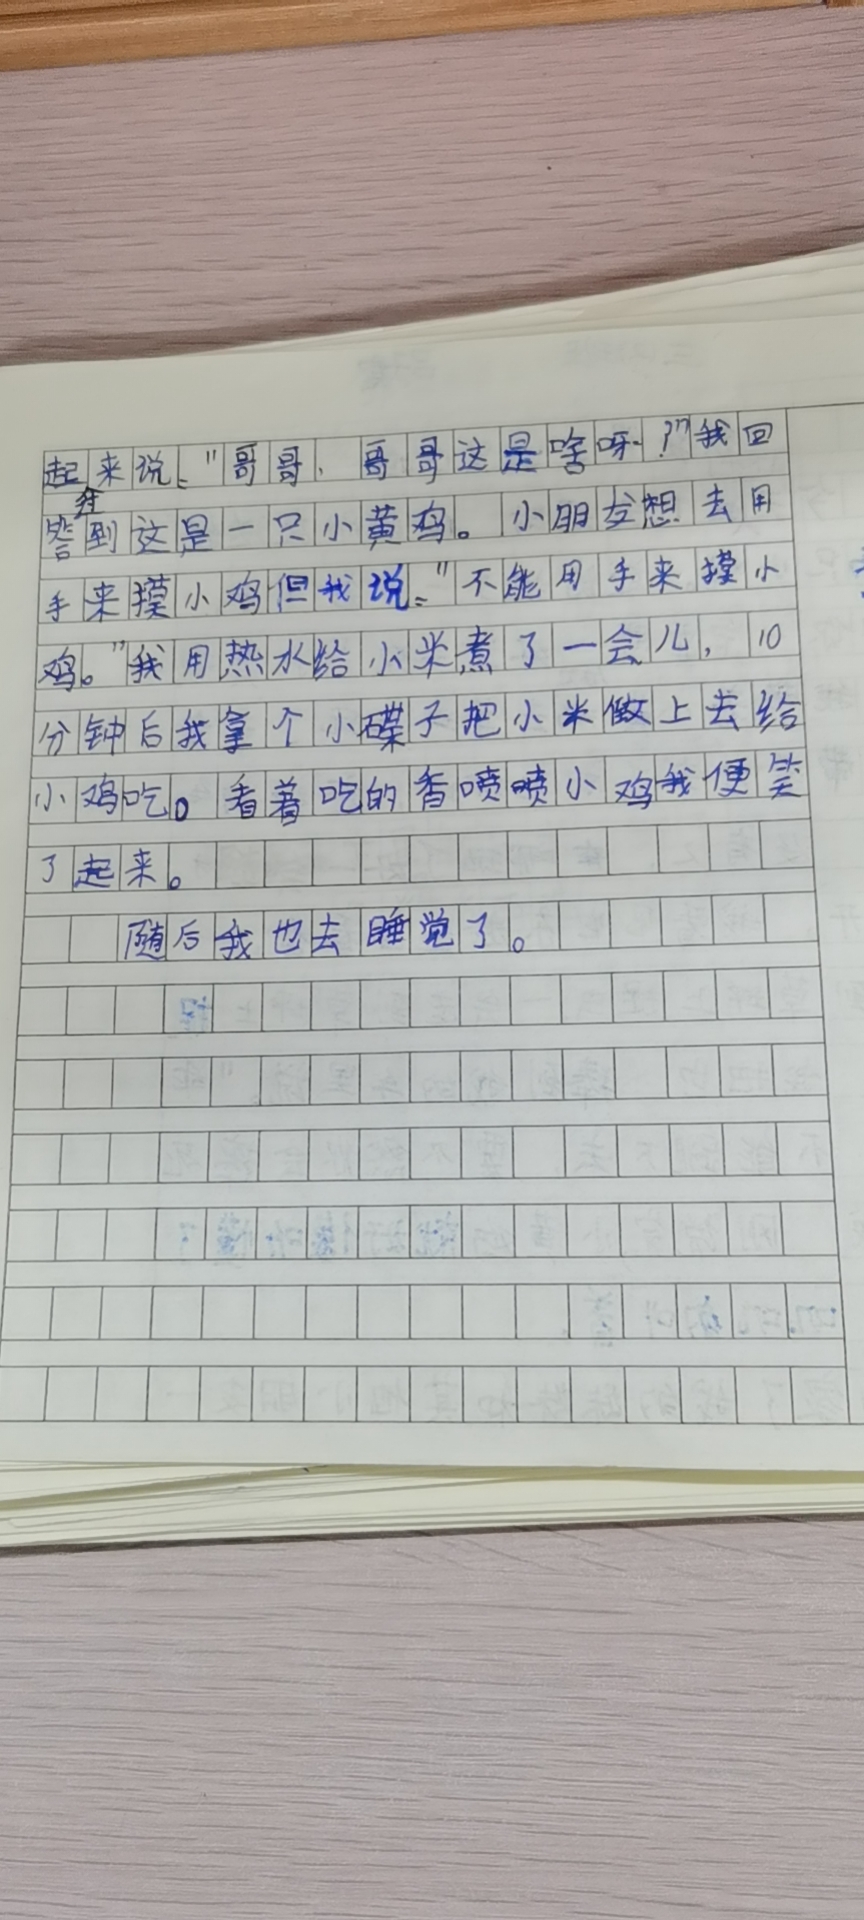 起来说:"哥哥、哥哥这是啥呀?"我回
答到这是一只小黄鸡。小朋友想去用
手来摸小鸡但我说:"不能用手来摸小
鸡。"我用热水给小米煮了一会儿,10
分钟后我拿个小碟子把小米做上去给
小鸡吃。看着吃的香喷喷小鸡我便笑
了起来。
随后我也去睡觉了。